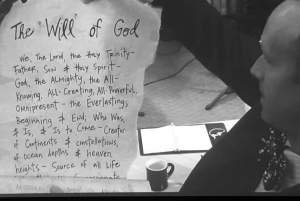 The Will of God
We, The Lord, the Holy Trinity-
Father, Son & Holy Spirit-
God, the Almighty, the All-
Knowing, All-Creating, All-Powerful,
Omnipresent - the Everlasting,
Beginning & End, Who Was,
& Is, & Is to Come - Creator
of Continents & constellations,
of ocean depths & heaven
heights - Source of all Life